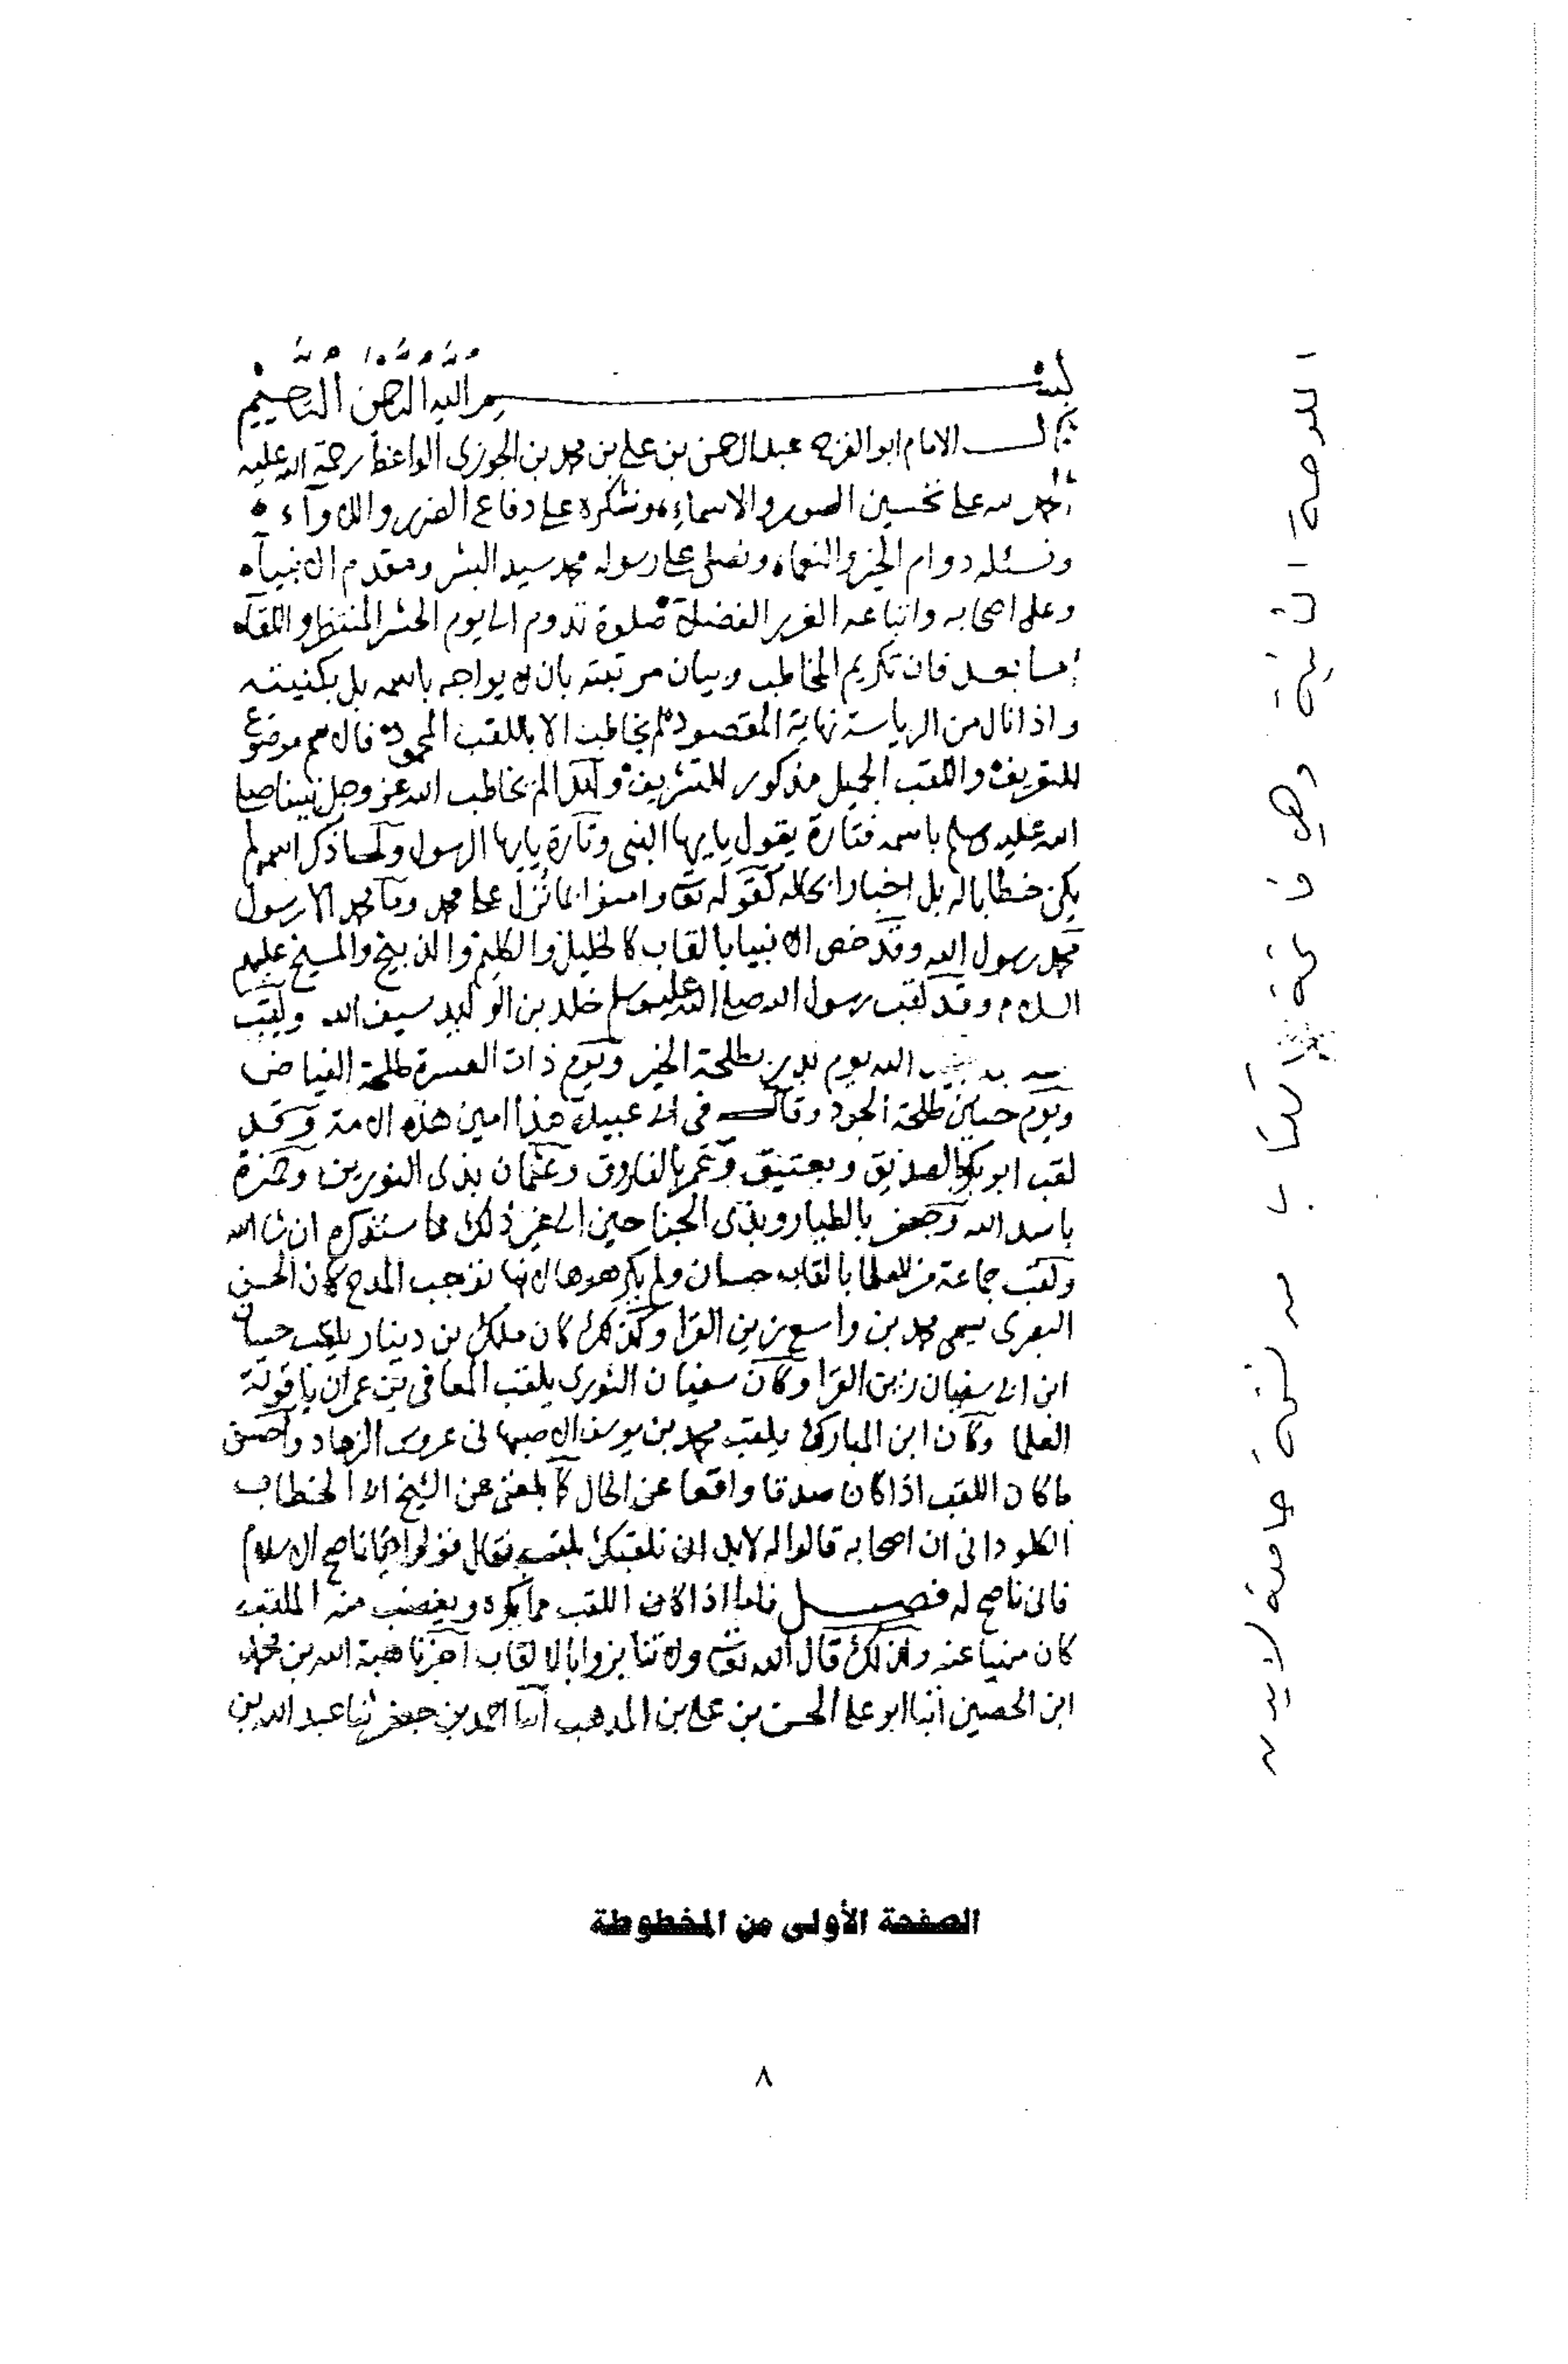 بسم الله الرحمن الرحيم
قال الامام ابو الفرج عبد الرحمن بن علي بن محمد بن الجوزى الواعظ رحمة الله عليه
الحمد لله على تحسين الصور والاسماء ونشكره على دفاع الضر واللاوآء
ونسئله دوام الخير والنعماء ونصلى على رسوله محمد سيد البشر ومقدم الانبيآء
وعلى اصحابه واتباعه الغرر الفضلاء صلوة تدوم الى يوم الحشر المنتظر واللقاء
اما بعد فان تكريم المخاطب وبيان مرتبته بان لا يواجه باسمه بل بكنيته
واذا نال من الرياسة نهاية المقصود لم يخاطب الا باللقب المحمود فالاسم موضوع
للتعريف واللقب الجميل مذكور للتشريف ولهذا لم يخاطب الله عز وجل نبينا صلى
الله عليه وسلم باسمه فتارة يقول يايها النبى وتارة يايها الرسول ولما ذكر اسمه لم
يكن خطابا له بل اخبارا بحاله كقوله تعا وامنوا بما نزل على محمد وما محمد الا رسول
محمد رسول الله وقد خص الانبيا بالقاب كالخليل والكليم والذبيح والمسيح عليهم
السلام وقد لقب رسول الله صلى الله عليه وسلم خلد بن الوليد سيف الله ولقب
الله يوم بطلحة الخير ويوم ذات العسرة طلحة الفياض
ويوم حنين طلحة الجود وقال في ابى عبيدة هذا امين هذه الامة وقد
لقب ابو بكر بالصديق وبعتيق وعمر بالفاروق وعثمان بذى النورين وحمزة
باسد الله وجعفر بالطيار وبذى الجناحين الى غير ذلك مما سنذكره ان شا الله
ولقب جماعة من العلما بالقاب حسان ولم يكرهوها لانها توجب المدح كان الحسن
البصرى يسمى محمد بن واسع زين القرا وكذلك كان ملك بن دينار يلقب حسان
ابن ابى سفيان زين القرا وكان سفيان الثورى يلقب المعافى بن عمران ياقوتة
العلما وكان ابن المبارك يلقب محمد بن يوسف الاصبهانى عروس الزهاد واحسن
ما كان اللقب اذا كان صدقا واقعا عن الحال كما بلغنى عن الشيخ ابى الخطاب
الكلوذانى ان اصحابه قالوا له لا بد ان نلقبك بلقب فقال قولوا ناصح الاسلام
فانى ناصح له فصل فاما اذا كان اللقب مما يكره ويغضب منه الملقب
كان منهيا عنه ولذلك قال الله تعا ولا تنابزوا بالالقاب اخبرنا هبة الله بن محمد
ابن الحصين انبا ابو على الحسن بن على بن المذهب انبا احمد بن جعفر ثنا عبد الله بن
اللوحة الثانية وهي فاتحة الكتاب من نسخة جامعة لايدن
الصفحة الأولى من المخطوطة
٨